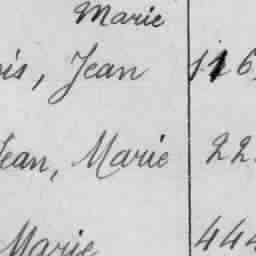 Marie
is, Jean 116
Jean, Marie 22
Marie 444